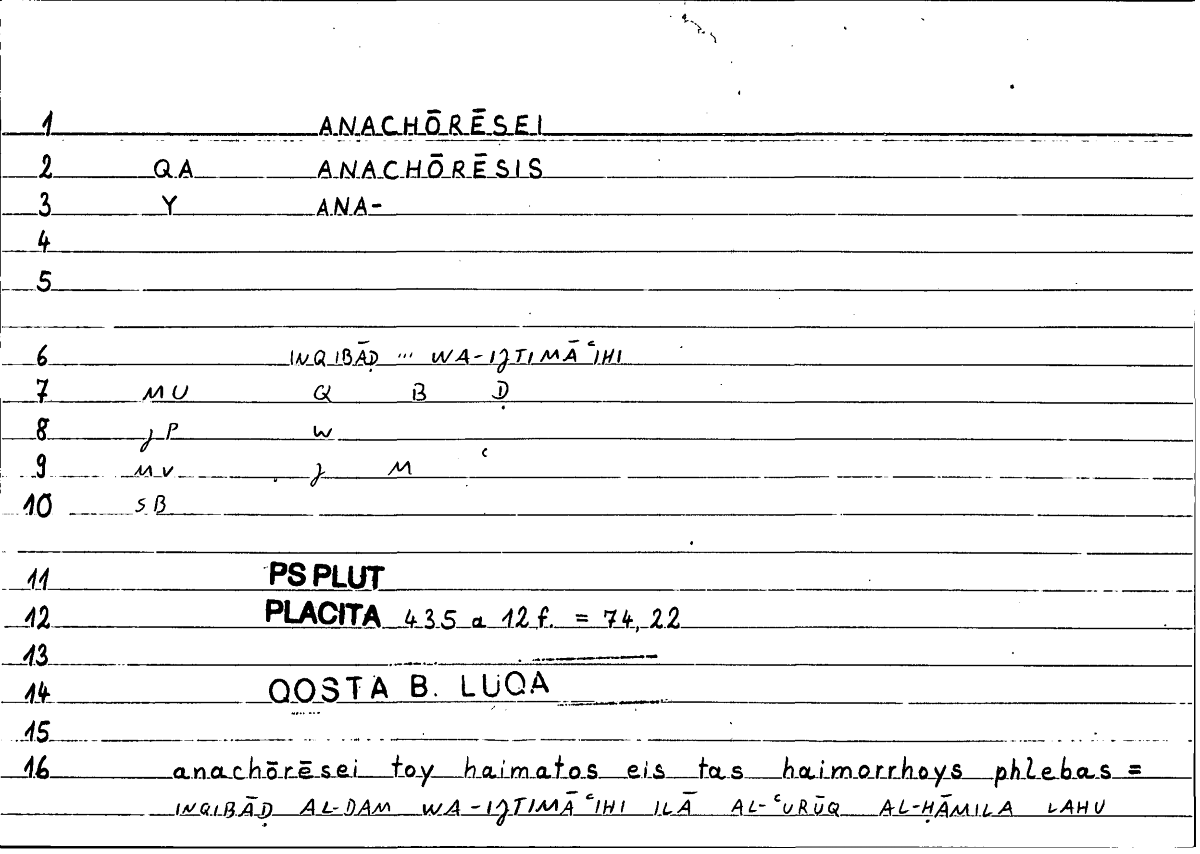 1 ANACHŌRĒSEI
2 QA ANACHŌRĒSIS
3 Y ANA-
4
5
6 INQIBĀḌ ... WA-IJTIMĀʿIHI
7 MU Q B Ḍ
8 JP W
9 MV J M ʿ
10 SB
11 PS PLUT
12 PLACITA 435 a 12 f. = 74, 22
13
14 QOSTA B. LUQA
15
16 anachōrēsei toy haimatos eis tas haimorrhoys phlebas =
INQIBĀḌ AL-DAM WA-IJTIMĀʿIHI ILĀ AL-ʿURŪQ AL-ḤĀMILA LAHU